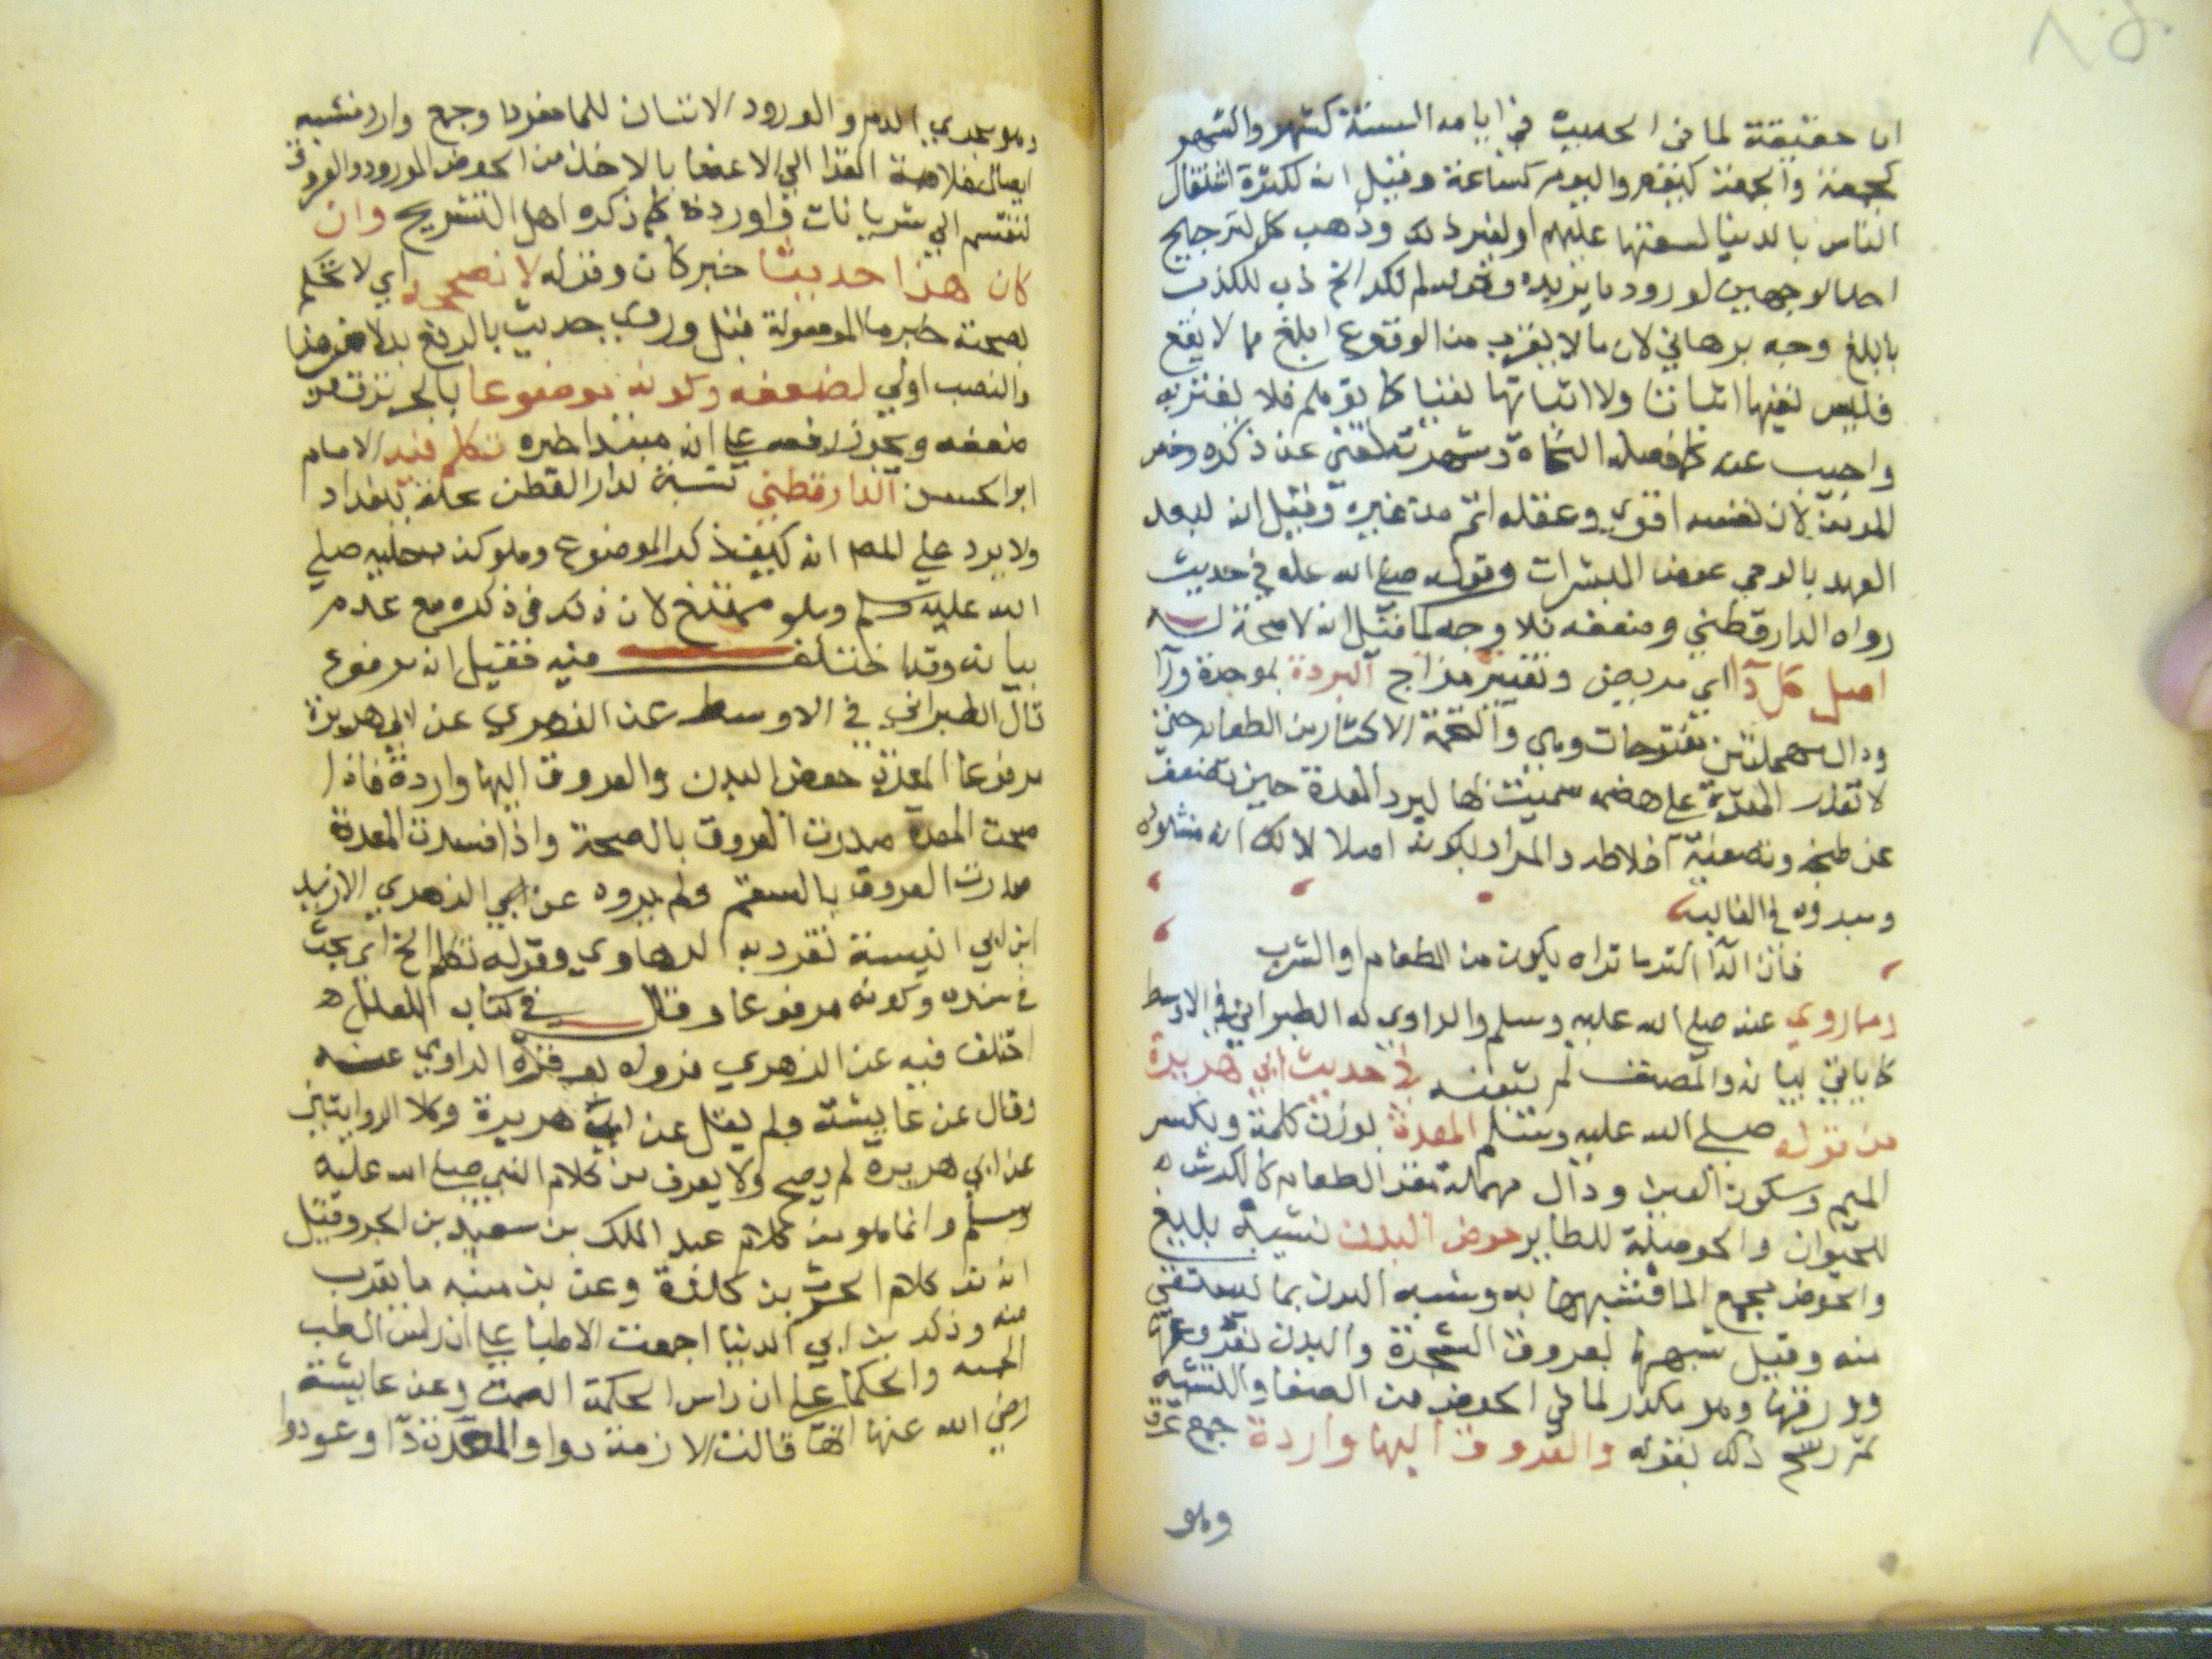 اما حقيقة لما في الحديث في ايامه السنة كشهر والشهر
كجمعة والجمعة كيوم واليوم كساعة وقيل انه لكثرة اشتغال
الناس بالدنيا لسعتها عليهم او لغير ذلك وذهب كل لترجيح
احد الوجهين لورود ما يزيده وقوله لم تكد الخ ذب للكذب
بابلغ وجه برهاني لان ما لا يقرب من الوقوع ابلغ مما لا يقع
فليس نفيها اثباتا ولا اثباتها نفيا كما توهم فلا تغتر به
واجيب عنه كما فصله النحاة وشهرته تغني عن ذكره وخص
المؤمن لان نفسه اقوى وعقله اتم من غيره وقيل انه لبعد
العهد بالوحي عوض المبشرات وقوله صلى الله عليه في حديث
رواه الدارقطني وضعفه فلا وجه لما قيل انه لا صحة له
اصل كل دآ اي مريض وتغيير مزاج البردة بموحدة ورآ
ودال مهملتين مفتوحات وهي والتخمة الاكثار من الطعام حتى
لا تقدر المعدة على هضمه سميت بها لبرد المعدة حين تضعف
عن طبخه وتصفية اخلاطه والمراد بكونه اصلا لذلك انه منشاوه
ومبدؤه في الغالب
فان الدآ اكثر ما تراه يكون من الطعام او الشرب
وما روي عنه صلى الله عليه وسلم والراوي له الطبراني في الاوسط
كما ياتي بيانه والمصنف لم يتقنه في حديث ابي هريرة
من قوله صلى الله عليه وسلم المعدة بوزن كلمة وبكسر
الميم وسكون العين ودال مهملة مقر الطعام كالكرش
للحيوان والحوصلة للطاير حوض البدن تشبيه بليغ
والحوض مجمع الما فشبهها به وشبه البدن بما يستقي
منه وقيل شبهها بعروق الشجرة والبدن بفروعها
وورقها وهو مكدر لما في الحوض من الصفا والتشبيه
ثم رشح ذلك بقوله والعروق اليها واردة جمع عرق
وهو
وهو مجري الدم والورود الاتيان للما مفردا وجمع وارد فشبه
ايصال خلاصة الغذا الى الاعضا بالاخذ من الحوض المورود والعروق
تنقسم الى شريانات واوردة كما ذكره اهل التشريح وان
كان هذا حديثا خبر كان وقوله لا نصححه اي لا نحكم
بصحته خبر ما الموصولة قبل وروي حديث بالرفع بدلا من هذا
والنصب اولى لضعفه وكونه موضوعا بالجر ترق من
ضعفه ويجوز رفعه على انه مبتدا خبره تكلم فيه الامام
ابو الحسن الدارقطني نسبة لدار القطن محلة ببغداد
ولا يرد على المص انه كيف ذكر الموضوع وهو كذب عليه صلى
الله عليه وسلم وهو ممتنع لان ذلك في ذكره مع عدم
بيانه وقد اختلف فيه فقيل انه مرفوع
قال الطبراني في الاوسط عن الزهري عن ابي هريرة
مرفوعا المعدة حوض البدن والعروق اليها واردة فاذا
صحت المعدة صدرت العروق بالصحة واذا فسدت المعدة
صدرت العروق بالسقم ولم يروه عن الزهري الا زيد
ابن ابي انيسة تفرد به الرهاوي وقوله تكلم الخ اي بحث
في سنده وكونه مرفوعا وقال في كتاب العلل
اختلف فيه عن الزهري فرواه ابو قرة الراوي عنه
وقال عن عايشة ولم يقل عن ابي هريرة وكلا الروايتين
عن ابي هريرة لم يصح ولا يعرف من كلام النبي صلى الله عليه
وسلم وانما هو من كلام عبد الملك بن سعيد بن ابجر وقيل
انه من كلام الحرث بن كلدة وعن بن منبه ما يقرب
منه وذكر بن ابي الدنيا اجمعت الاطبا على ان راس الطب
الحمية والحكما على ان راس الحكمة الصمت وعن عايشة
رضي الله عنها انها قالت الازمة دوا والمعدة دآ وعودوا